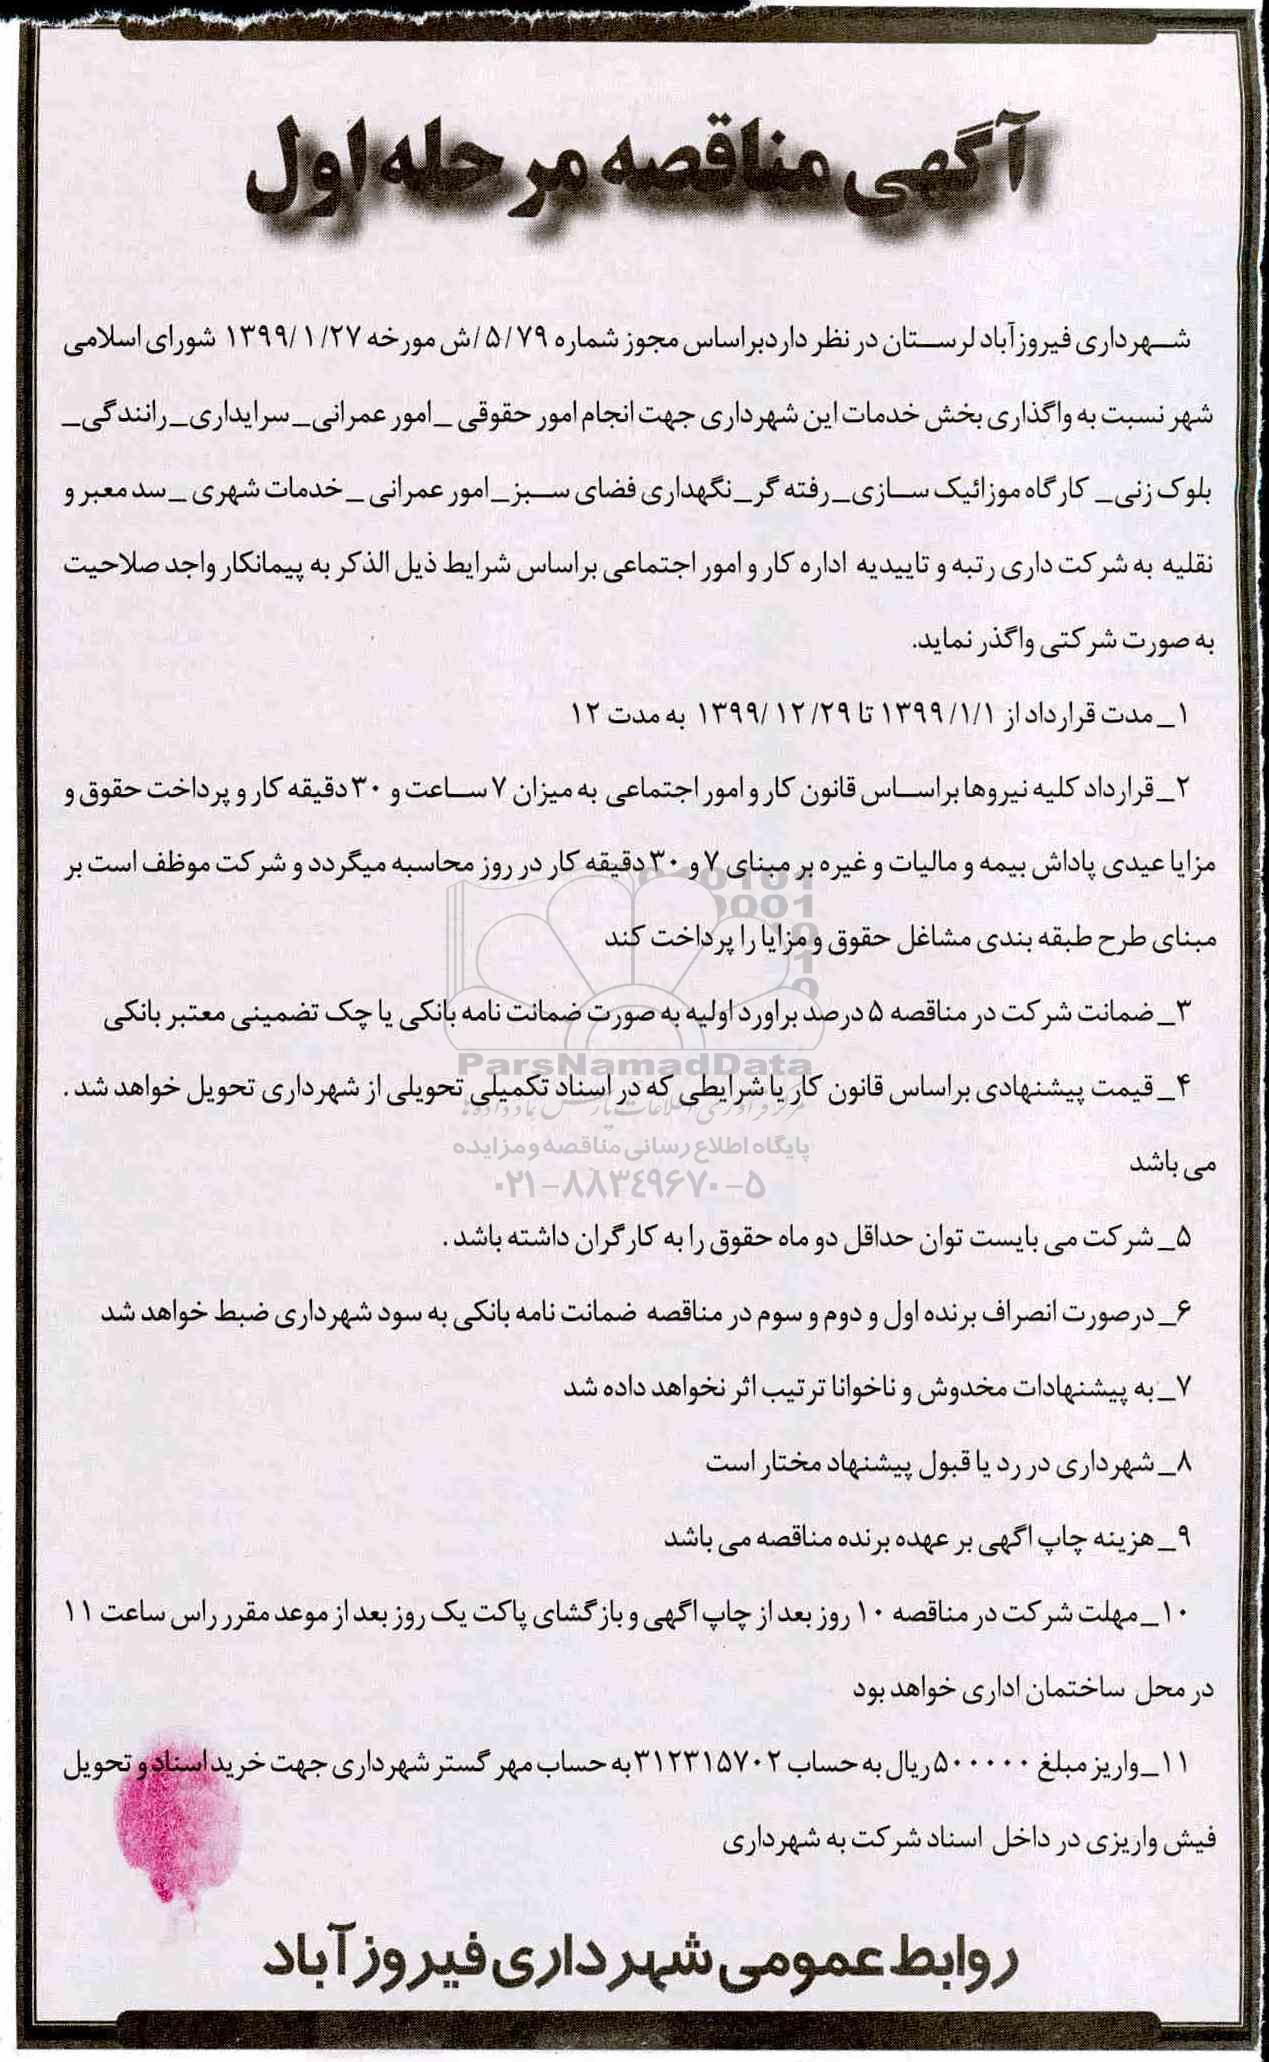 آگهی مناقصه مرحله اول
شهرداری فیروزآباد لرستان در نظر داردبراساس مجوز شماره ۵/۷۹/ش مورخه ۱۳۹۹/۱/۲۷ شورای اسلامی
شهر نسبت به واگذاری بخش خدمات این شهرداری جهت انجام امور حقوقی _امور عمرانی_سرایداری_رانندگی_
بلوک زنی_ کارگاه موزائیک سازی_رفته گر_نگهداری فضای سبز_امور عمرانی _خدمات شهری _سد معبر و
نقلیه به شرکت داری رتبه و تاییدیه اداره کار و امور اجتماعی براساس شرایط ذیل الذکر به پیمانکار واجد صلاحیت
به صورت شرکتی واگذر نماید.
۱_مدت قرارداد از ۱۳۹۹/۱/۱ تا ۱۳۹۹/۱۲/۲۹ به مدت ۱۲
۲_قرارداد کلیه نیروها براساس قانون کار و امور اجتماعی به میزان ۷ساعت و ۳۰دقیقه کار و پرداخت حقوق و
مزایا عیدی پاداش بیمه و مالیات و غیره بر مبنای ۷ و ۳۰دقیقه کار در روز محاسبه میگردد و شرکت موظف است بر
مبنای طرح طبقه بندی مشاغل حقوق و مزایا را پرداخت کند
۳_ضمانت شرکت در مناقصه ۵درصد براورد اولیه به صورت ضمانت نامه بانکی یا چک تضمینی معتبر بانکی
ParsNamadData
۴_قیمت پیشنهادی براساس قانون کار یا شرایطی که در اسناد تکمیلی تحویلی از شهرداری تحویل خواهد شد .
پایگاه اطلاع رسانی مناقصه و مزایده
می باشد
۰۲۱-۸۸۳۴۹۶۷۰-۵
۵_شرکت می بایست توان حداقل دو ماه حقوق را به کارگران داشته باشد .
۶_درصورت انصراف برنده اول و دوم و سوم در مناقصه ضمانت نامه بانکی به سود شهرداری ضبط خواهد شد
۷_به پیشنهادات مخدوش و ناخوانا ترتیب اثر نخواهد داده شد
۸_شهرداری در رد یا قبول پیشنهاد مختار است
۹_هزینه چاپ اگهی بر عهده برنده مناقصه می باشد
۱۰_مهلت شرکت در مناقصه ۱۰روز بعد از چاپ اگهی و بازگشای پاکت یک روز بعد از موعد مقرر راس ساعت ۱۱
در محل ساختمان اداری خواهد بود
۱۱_واریز مبلغ ۵۰۰۰۰۰ریال به حساب ۳۱۲۳۱۵۷۰۲به حساب مهر گستر شهرداری جهت خرید اسناد و تحویل
فیش واریزی در داخل اسناد شرکت به شهرداری
روابط عمومی شهرداری فیروزآباد